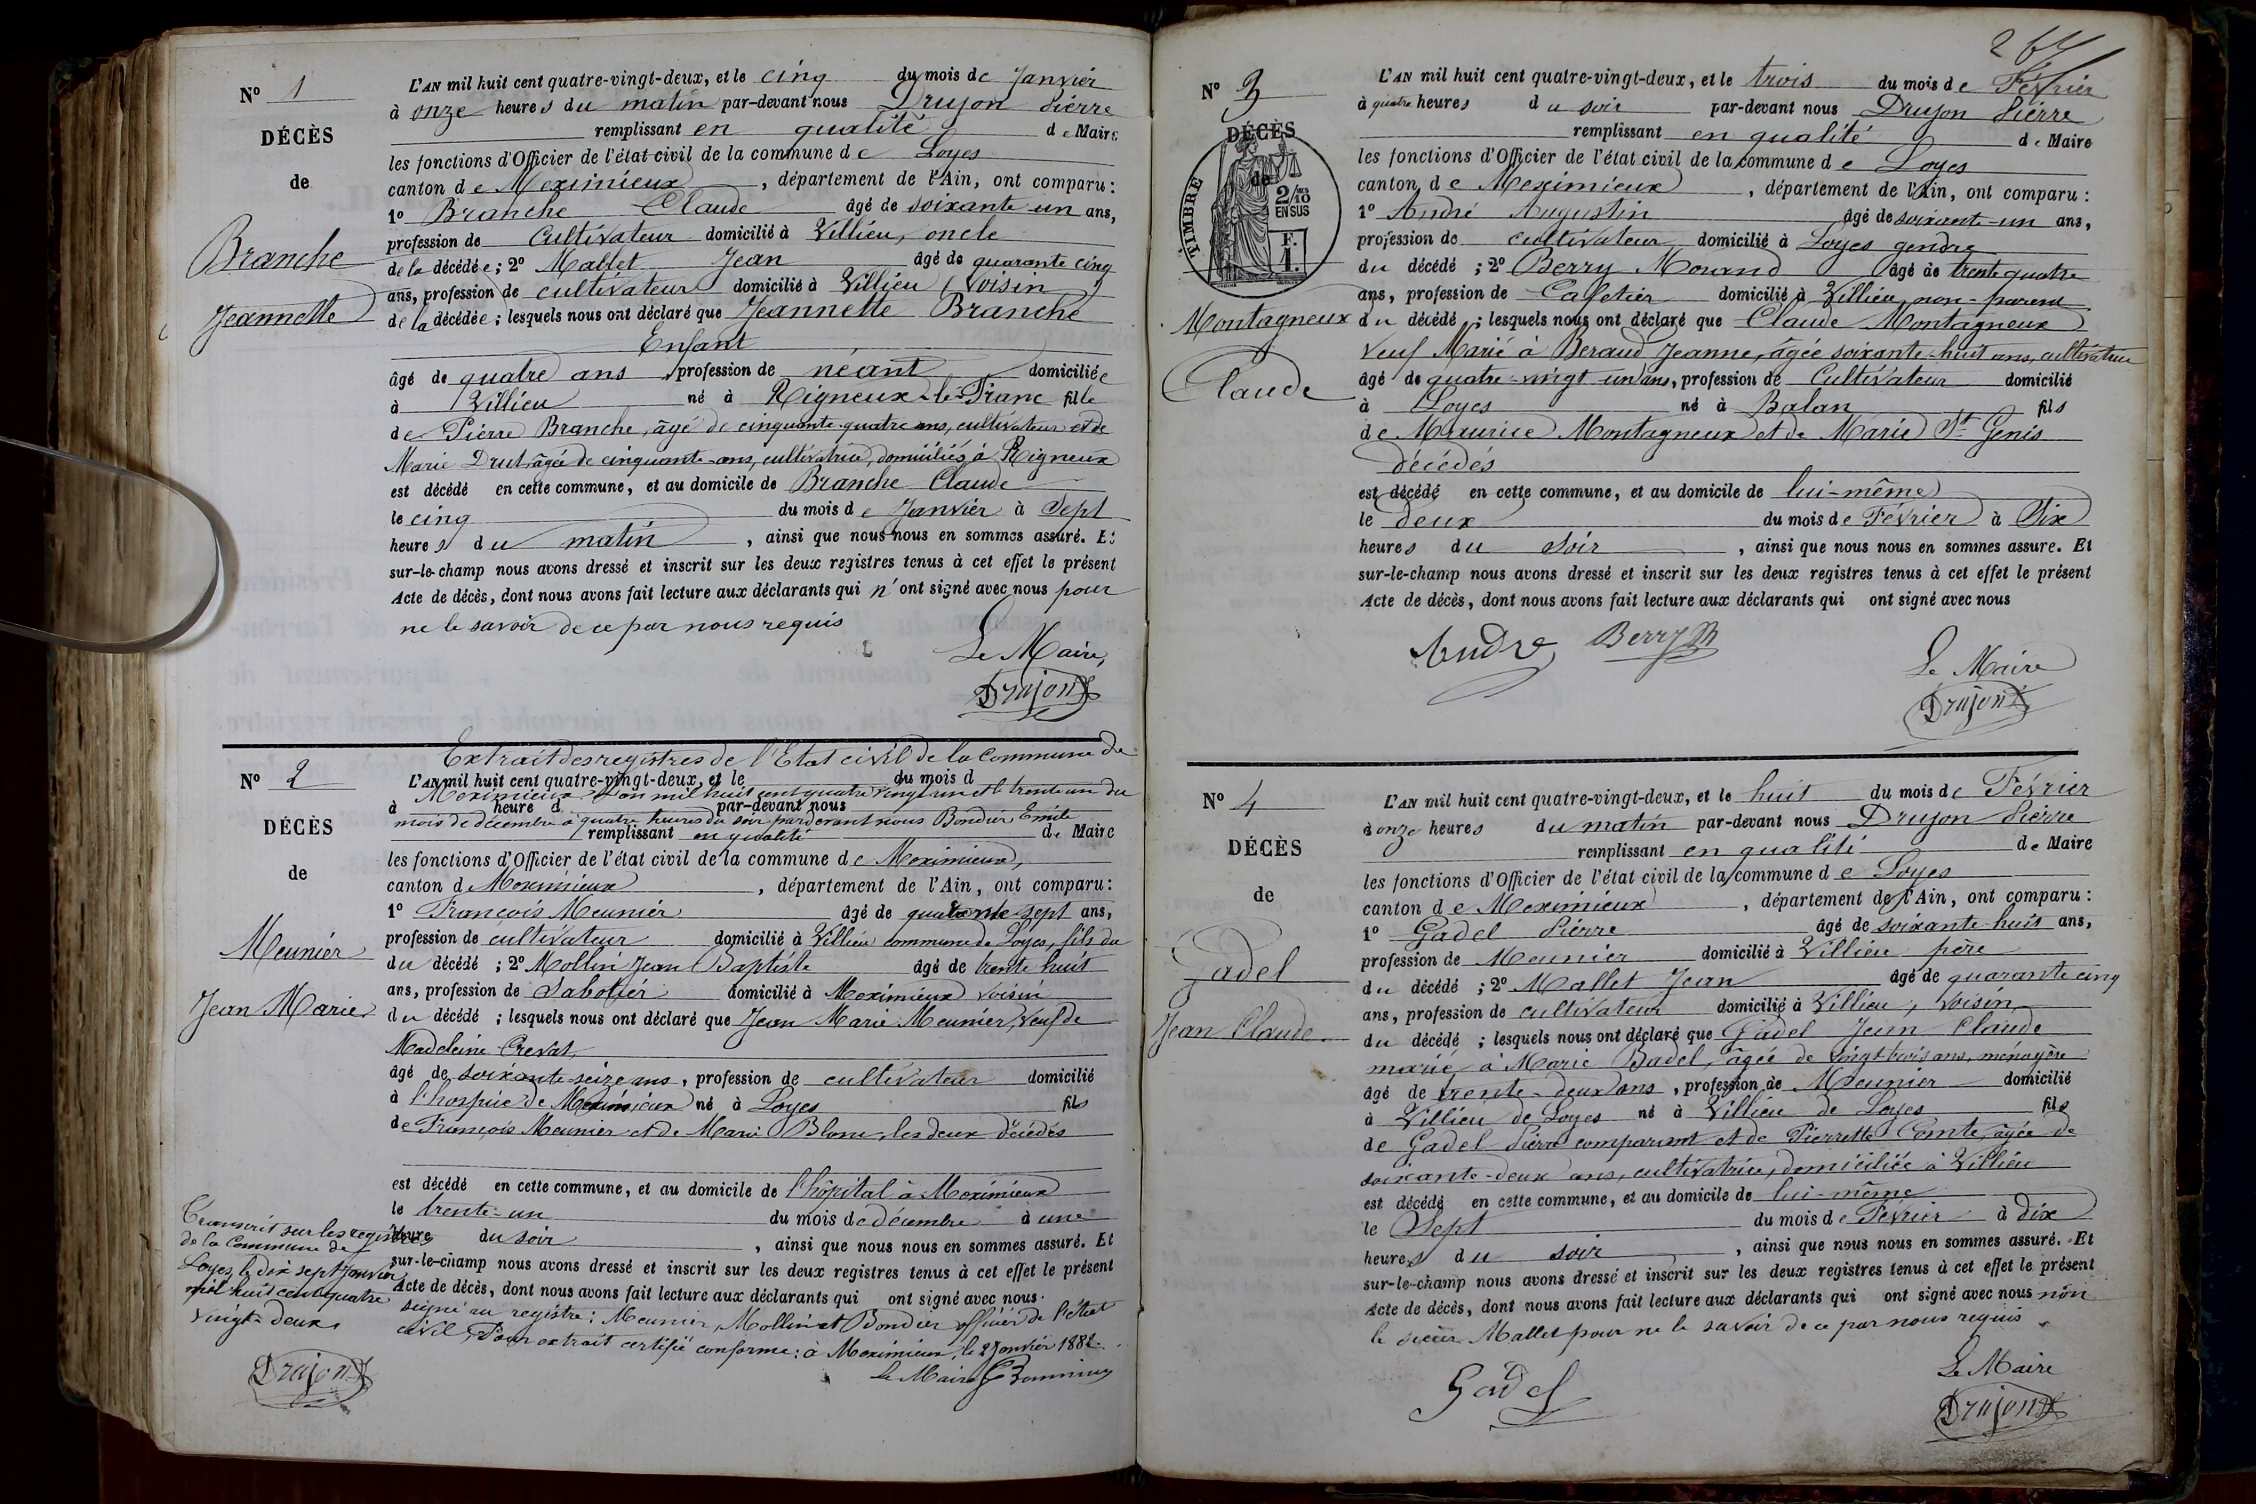 N° 1
DÉCÈS
de
Branche
Jeannette
L'AN mil huit cent quatre-vingt-deux, et le cinq du mois de Janvier
à onze heures du matin par-devant nous Drujon Pierre
remplissant en qualité de Maire
les fonctions d'Officier de l'état civil de la commune de Loyes
canton de Meximieux, département de l'Ain, ont comparu:
1° Branche Claude âgé de soixante-un ans,
profession de Cultivateur domicilié à Villieu, oncle
de la décédée; 2° Mallet Jean âgé de quarante cinq
ans, profession de cultivateur domicilié à Villieu (Voisin)
de la décédée; lesquels nous ont déclaré que Jeannette Branche
Enfant
âgé de quatre ans, profession de néant domiciliée
à Villieu né à Rigneux-le-Franc fille
de Pierre Branche, âgé de cinquante-quatre ans, cultivateur et de
Marie Drut, âgée de cinquante-ans, cultivatrice, domiciliés, à Rigneux
est décédé en cette commune, et au domicile de Branche Claude
le cinq du mois de Janvier à Sept
heures du matin, ainsi que nous nous en sommes assuré. Et
sur-le-champ nous avons dressé et inscrit sur les deux registres tenus à cet effet le présent
Acte de décès, dont nous avons fait lecture aux déclarants qui n'ont signé avec nous pour
ne le savoir de ce par nous requis
Le Maire,
Drujon
N° 2
DÉCÈS
de
Meunier
Jean Marie
Extrait des registres de l'Etat civil de la Commune de
L'AN mil huit cent quatre-vingt-deux, et le du mois d
Meximieux L'an mil huit cent quatre vingt un et le trente un du
à heure d par-devant nous
mois de décembre à quatre heures du soir par devant nous Bondier Emile
remplissant en qualité de Maire
les fonctions d'Officier de l'état civil de la commune de Meximieux,
canton de Meximieux, département de l'Ain, ont comparu:
1° François Meunier âgé de quarante-sept ans,
profession de cultivateur domicilié à Villieu commune de Loyes, fils du
du décédé; 2° Mollin Jean Baptiste âgé de trente huit
ans, profession de Sabotier domicilié à Meximieux voisin
du décédé; lesquels nous ont déclaré que Jean Marie Meunier, Veuf de
Madeleine Crevat,
âgé de soixante-seize ans, profession de cultivateur domicilié
à l'hospice de Meximieux né à Loyes fils
de François Meunier et de Marie Blanc, les deux décédés
est décédé en cette commune, et au domicile de l'hôpital à Meximieux
le trente-un du mois de décembre à une
heure du soir, ainsi que nous nous en sommes assuré. Et
sur-le-champ nous avons dressé et inscrit sur les deux registres tenus à cet effet le présent
Acte de décès, dont nous avons fait lecture aux déclarants qui ont signé avec nous.
signé au registre: Meunier, Mollin et Bondier officier de l'état
civil, Pour extrait certifié conforme: à Meximieux, le 2 Janvier 1882.
Le Maire
Transcrit sur les registres
de la Commune de
Loyes, le dix sept Janvier
mil huit cent quatre
vingt-deux
Drujon
264
N° 3
DÉCÈS
de
TIMBRE
2/10
EN SUS
F.
1.
Montagneux
Claude
L'AN mil huit cent quatre-vingt-deux, et le trois du mois de Février
à quatre heures du soir par-devant nous Drujon Pierre
remplissant en qualité de Maire
les fonctions d'Officier de l'état civil de la commune de Loyes
canton de Meximieux, département de l'Ain, ont comparu:
1° André Augustin âgé de soixante-un ans,
profession de cultivateur domicilié à Loyes gendre
du décédé; 2° Berry Morand âgé de trente quatre
ans, profession de Cafetier domicilié à Villieu, non-parent
du décédé; lesquels nous ont déclaré que Claude Montagneux
Veuf Marié à Beraud Jeanne, âgée soixante-huit ans, cultivateur
âgé de quatre-vingt un ans, profession de Cultivateur domicilié
à Loyes né à Balan fils
de Maurice Montagneux et de Marie St Genis
décédés
est décédé en cette commune, et au domicile de lui-même
le deux du mois de Février à Six
heures du soir, ainsi que nous nous en sommes assuré. Et
sur-le-champ nous avons dressé et inscrit sur les deux registres tenus à cet effet le présent
Acte de décès, dont nous avons fait lecture aux déclarants qui ont signé avec nous
André Berry M
Le Maire
Drujon
N° 4
DÉCÈS
de
Gadel
Jean Claude
L'AN mil huit cent quatre-vingt-deux, et le huit du mois de Février
à onze heures du matin par-devant nous Drujon Pierre
remplissant en qualité de Maire
les fonctions d'Officier de l'état civil de la commune de Loyes
canton de Meximieux, département de l'Ain, ont comparu:
1° Gadel Pierre âgé de soixante-huit ans,
profession de Meunier domicilié à Villieu père
du décédé; 2° Mallet Jean âgé de quarante cinq
ans, profession de cultivateur domicilié à Villieu, Voisin
du décédé; lesquels nous ont déclaré que Gadel Jean Claude
marié à Marie Badel, âgée de vingt-trois ans, ménagère
âgé de trente-deux ans, profession de Meunier domicilié
à Villieu de Loyes né à Villieu de Loyes fils
de Gadel Pierre comparant et de Pierrette Comte, âgée de
soixante-deux ans, cultivatrice, domiciliée à Villieu
est décédé en cette commune, et au domicile de lui-même
le Sept du mois de Février à dix
heures du soir, ainsi que nous nous en sommes assuré. Et
sur-le-champ nous avons dressé et inscrit sur les deux registres tenus à cet effet le présent
Acte de décès, dont nous avons fait lecture aux déclarants qui ont signé avec nous non
le sieur Mallet pour ne le savoir de ce par nous requis
Gadel
Le Maire
Drujon